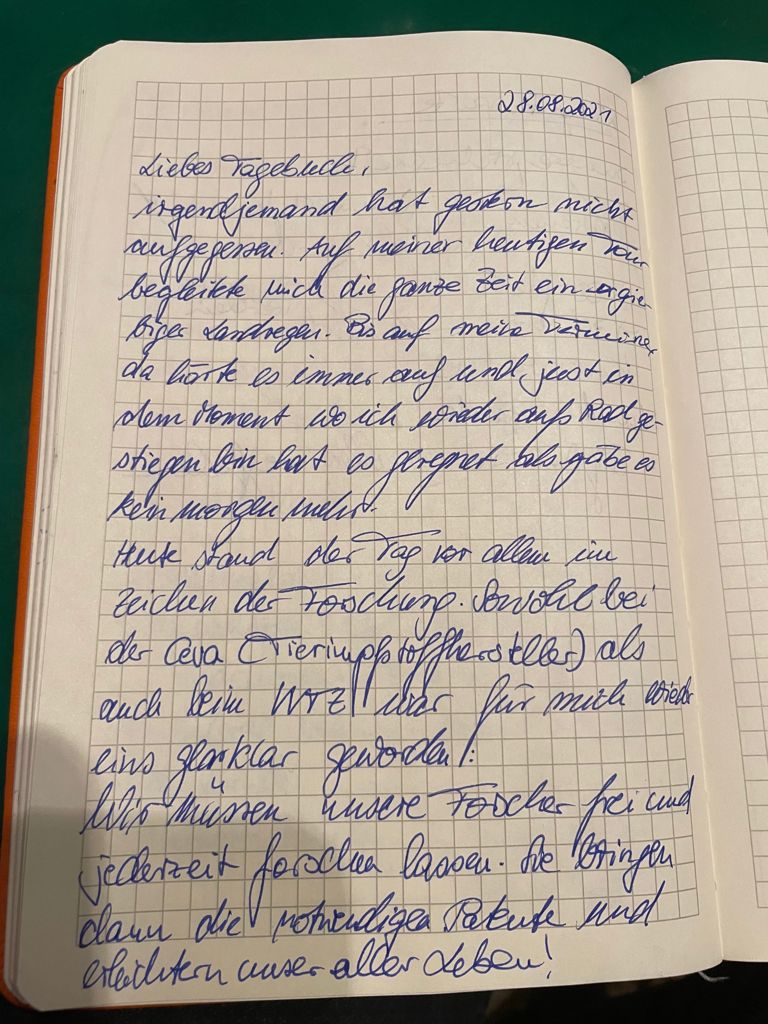 28.08.2021
Liebes Tagebuch,
irgendjemand hat gestern nicht
aufgegessen. Auf meiner heutigen Tour
begleitete mich die ganze Zeit ein ergie-
biger Landregen. Bis auf meine Termine,
da hörte es immer auf und just in
dem Moment wo ich wieder aufs Rad ge-
stiegen bin hat es geregnet als gäbe es
kein morgen mehr.
Heute stand der Tag vor allem im
Zeichen der Forschung. Sowohl bei
der Ceva (Tierimpfstoffhersteller) als
auch beim WTZ war für mich wieder
eins glasklar geworden:
Wir müssen unsere Forscher frei und
jederzeit forschen lassen. Sie bringen
dann die notwendigen Patente und
erleichtern unser aller Leben!